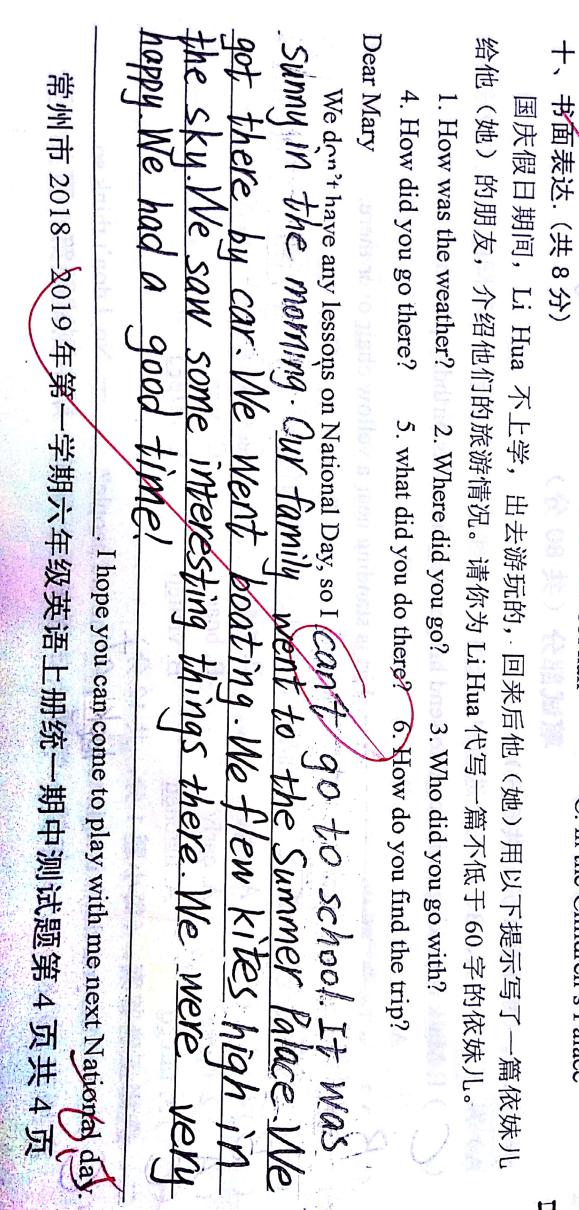 十、书面表达.(共8分)
国庆假日期间, Li Hua 不上学, 出去游玩的, 回来后他(她)用以下提示写了一篇依妹儿
给他(她)的朋友, 介绍他们的旅游情况。请你为 Li Hua 代写一篇不低于 60 字的依妹儿。
1. How was the weather? 2. Where did you go? 3. Who did you go with?
4. How did you go there? 5. what did you do there? 6. How do you find the trip?
Dear Mary
We don't have any lessons on National Day, so I can't go to school. It was
sunny in the morning. Our family went to the Summer Palace. We
got there by car. We went boating. We flew kites high in
the sky. We saw some interesting things there. We were very
happy. We had a good time!
. I hope you can come to play with me next National day.
常州市 2018—2019 年第一学期六年级英语上册统一期中测试题第 4 页共 4 页